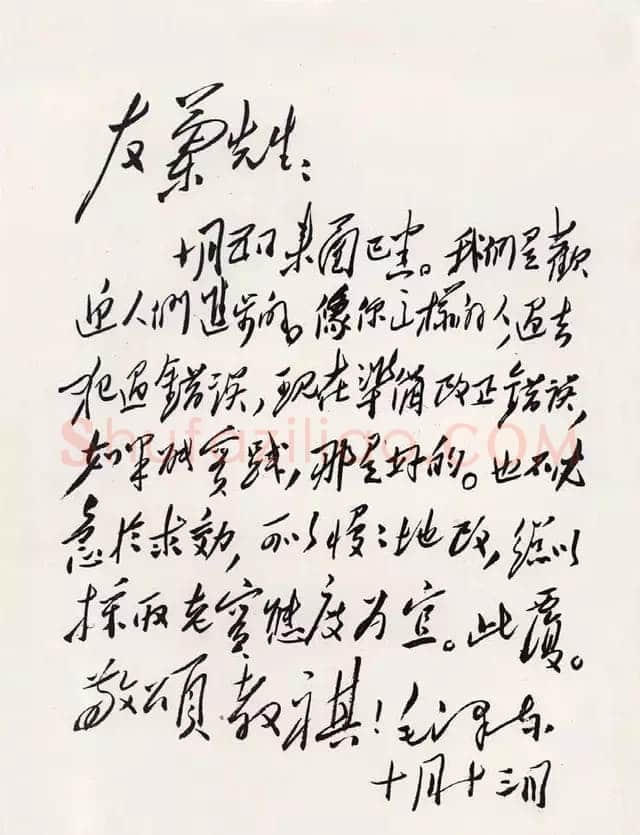 友兰先生：
十月五日来函已悉。我们是歡
迎人们進步的。像你这樣的人，過去
犯過錯误，现在準備改正錯误，
如果能實践，那是好的。也不必
急於求効，可以慢々地改，總以
採取老實態度为宜。此覆。
敬頌教祺！毛泽东
十月十三日
Shufaziliao.COM